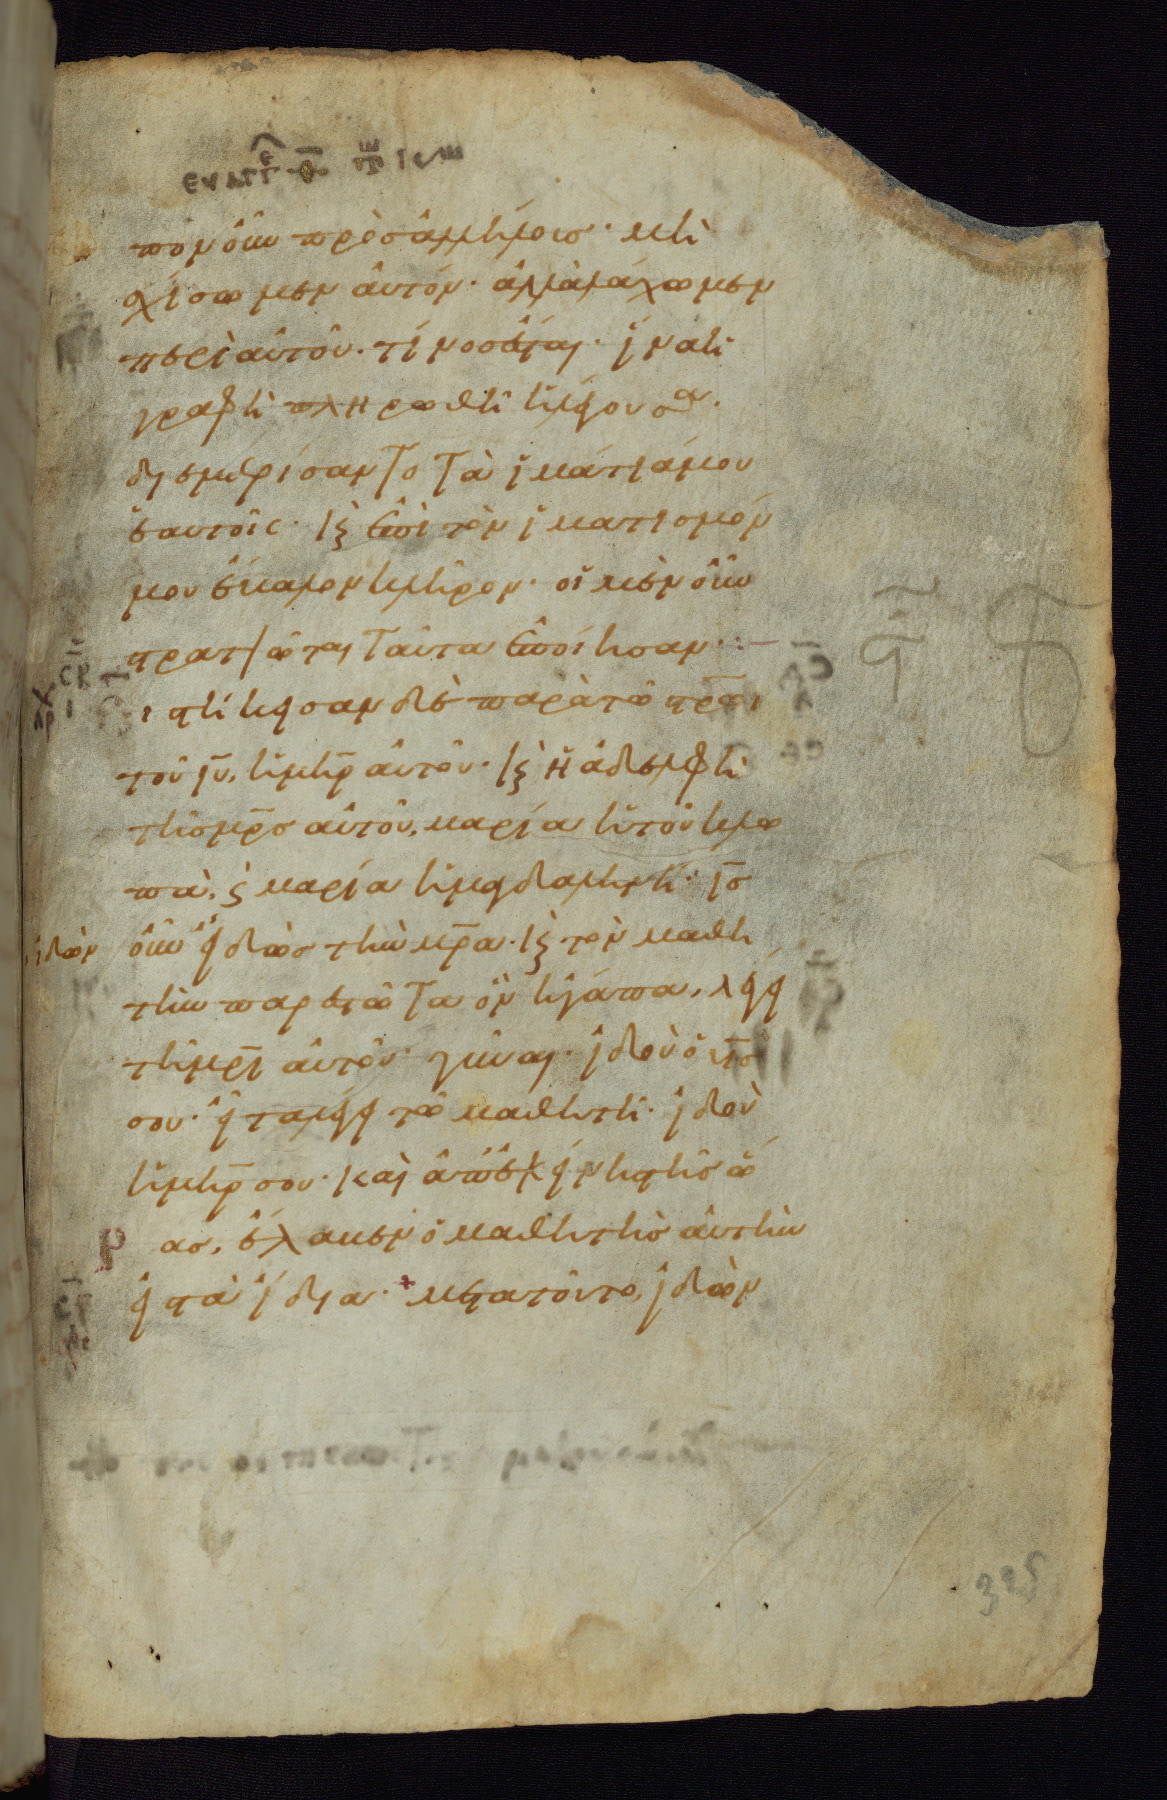 πον οὖν πρὸς ἀλλήλους· μὴ
σχίσωμεν αὐτόν· ἀλλὰ λάχωμεν
περὶ αὐτοῦ· τίνος ἔσται· ἵνα ἡ
γραφὴ πληρωθῆ ἡ λέγουσα·
διεμερίσαντο τὰ ἱμάτιά μου
ἑαυτοῖς· κ̀ ἐπὶ τὸν ἱματισμόν
μου ἔβαλον κλῆρον· οἱ μὲν οὖν
στρατιῶται ταῦτα ἐποίησαν·:–
ιστήκεισαν δὲ παρὰ τῶ στρ̅ω
τοῦ ιυ̅, ἡ μηρ̅ αὐτοῦ· κ̀ ἡ ἀδελφὴ
τῆς μρ̅ς αὐτοῦ, μαρία ἡ τοῦ κλω
πᾶ, κ̀ μαρία ἡ μαγδαληνή· ις̅
οὖν εἰδὼς τὴν μρ̅α· κ̀ τὸν μαθη
ἰδὼν
τὴν παρεστῶτα ὃν ἠγάπα, λέγει
τῆ μρ̅ι αὐτοῦ· γύναι· ἰδοὺ ὁ υς̅
σου· εἶτα λέγει τῶ μαθητῆ· ἰδοὺ
ἡ μηρ̅ σου· καὶ ἀπ' ἐκείνης τῆς ὥ
ρας, ἔλαβεν ὁ μαθητὴς αὐτὴν
εἰς τὰ ἴδια· μετὰ τοῦτο, ἰδὼν
325